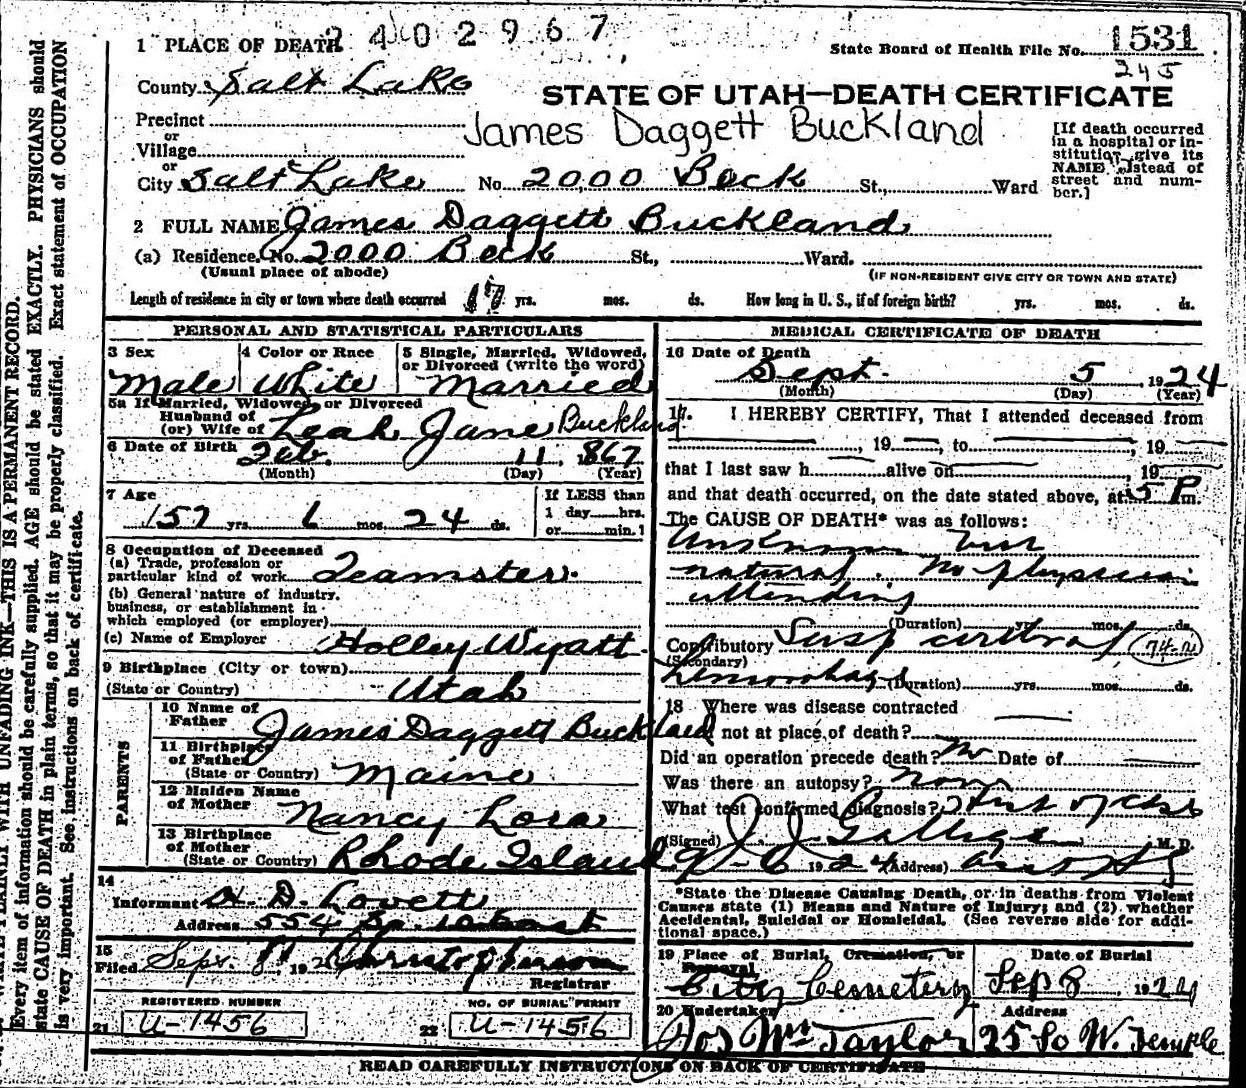 2402967
1 PLACE OF DEATH
State Board of Health File No. 1531
245
County Salt Lake
STATE OF UTAH—DEATH CERTIFICATE
Precinct
or
Village
James Daggett Buckland
[If death occurred in a hospital or institution, give its NAME instead of street and number.]
or
City Salt Lake No. 2000 Beck St., Ward
2 FULL NAME James Daggett Buckland
(a) Residence. No. 2000 Beck St., Ward.
(Usual place of abode) (IF NON-RESIDENT GIVE CITY OR TOWN AND STATE)
Length of residence in city or town where death occurred 17 yrs. mos. ds. How long in U. S., if of foreign birth? yrs. mos. ds.
PERSONAL AND STATISTICAL PARTICULARS
3 Sex 4 Color or Race 5 Single, Married, Widowed,
or Divorced (write the word)
Male White Married
5a If Married, Widowed or Divorced
Husband of
(or) Wife of Leah Jane Buckland
6 Date of Birth Feb. 11, 867
(Month) (Day) (Year)
7 Age If LESS than
57 yrs. 6 mos. 24 ds. 1 day hrs.
or min.
8 Occupation of Deceased
(a) Trade, profession or
particular kind of work Teamster
(b) General nature of industry,
business, or establishment in
which employed (or employer)
(c) Name of Employer Holley Wyatt
9 Birthplace (City or town)
(State or Country) Utah
PARENTS
10 Name of
Father James Daggett Buckland
11 Birthplace
of Father
(State or Country) Maine
12 Maiden Name
of Mother Nancy Lora
13 Birthplace
of Mother
(State or Country) Rhode Island
14
Informant H. D. Lovett
Address 554 So. 10 East
15
Filed Sept. 8, 192 Christopherson
Registrar
REGISTERED NUMBER NO. OF BURIAL PERMIT
21 U-1456 22 U-1456
MEDICAL CERTIFICATE OF DEATH
16 Date of Death
Sept. 5, 1924
(Month) (Day) (Year)
17. I HEREBY CERTIFY, That I attended deceased from
, 19 , to , 19
that I last saw h alive on , 19
and that death occurred, on the date stated above, at 5 P m.
The CAUSE OF DEATH* was as follows:
Unknown but
natural. No physician
attending
(Duration) yrs. mos. ds.
Contributory Susp cerebral 74-a
(Secondary)
hemorrhage (Duration) yrs. mos. ds.
18 Where was disease contracted
if not at place of death?
Did an operation precede death? No Date of
Was there an autopsy? none
What test confirmed diagnosis? Hist of case
(Signed) J. J. Galligan, M. D.
9-6 1924 (Address)
*State the Disease Causing Death, or in deaths from Violent
Causes state (1) Means and Nature of Injury; and (2) whether
Accidental, Suicidal or Homicidal. (See reverse side for addi-
tional space.)
19 Place of Burial, Cremation, or Date of Burial
Removal
City Cemetery Sep 8 1924
20 Undertaker Address
Jos Wm Taylor 25 So W. Temple
READ CAREFULLY INSTRUCTIONS ON BACK OF CERTIFICATE
WRITE PLAINLY WITH UNFADING INK—THIS IS A PERMANENT RECORD.
Every item of information should be carefully supplied. AGE should be stated EXACTLY. PHYSICIANS should
state CAUSE OF DEATH in plain terms, so that it may be properly classified. Exact statement of OCCUPATION
is very important. See instructions on back of certificate.